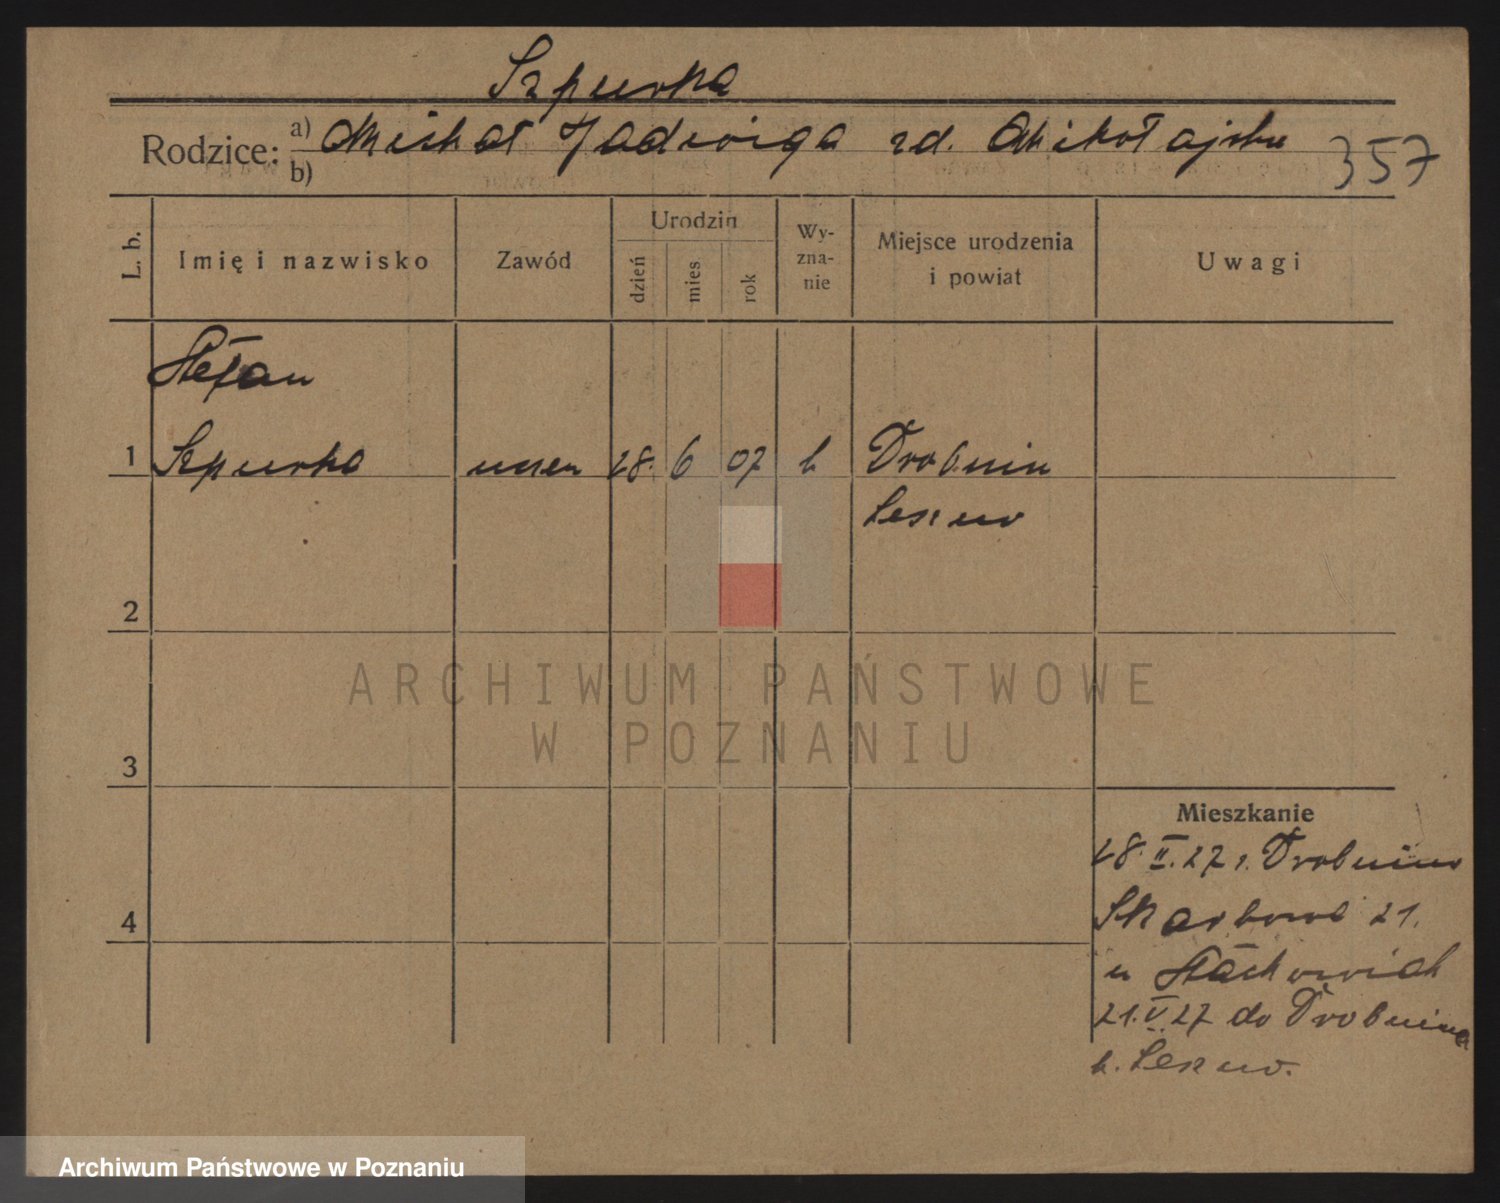 Szpurka
Rodzice: a) Michał Jadwiga zd. Mikołajska 357
b)
L. b. Imię i nazwisko Zawód Urodzin dzień mies rok Wyznanie Miejsce urodzenia i powiat Uwagi
Stefan
1 Szpurka uczen 28. 6 07 k Drobnin
Leszno
2
3
4
Mieszkanie
28. II. 27 z. Drobnina
Skarbowa 21.
u Stachowiak
21. V 27 do Drobnina
k. Leszno.
ARCHIWUM PAŃSTWOWE
W POZNANIU
Archiwum Państwowe w Poznaniu